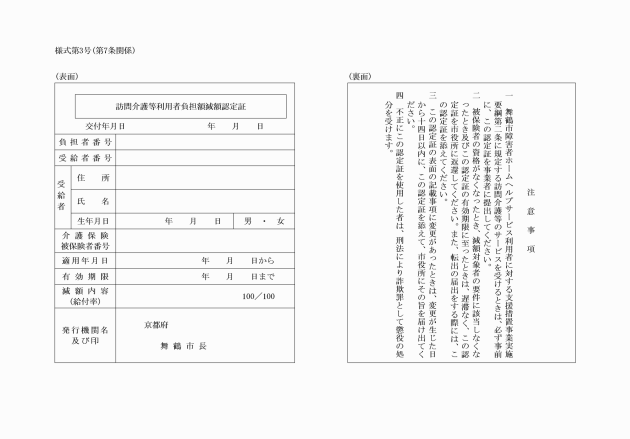 様式第3号(第7条関係)
(表面)
訪問介護等利用者負担額減額認定証
交付年月日 年 月 日
負担者番号
受給者番号
受給者
住所
氏名
生年月日 年 月 日 男・女
介護保険
被保険者番号
適用年月日 年 月 日から
有効期限 年 月 日まで
減額内容
(給付率)
100/100
発行機関名
及び印
京都府
舞鶴市長
(裏面)
注意事項
一 舞鶴市障害者ホームヘルプサービス利用者に対する支援措置事業実施
要綱第二条に規定する訪問介護等のサービスを受けるときは、必ず事前
に、この認定証を事業者に提出してください。
二 被保険者の資格がなくなったとき、減額対象者の要件に該当しなくな
ったとき及びこの認定証の有効期限に至ったときは、遅滞なく、この認
定証を市役所に返還してください。また、転出の届出をする際には、こ
の認定証を添えてください。
三 この認定証の表面の記載事項に変更があったときは、変更が生じた日
から十四日以内に、この認定証を添えて、市役所にその旨を届け出てく
ださい。
四 不正にこの認定証を使用した者は、刑法により詐欺罪として懲役の処
分を受けます。